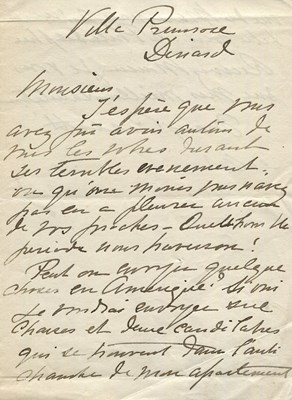 Villa Primrose
Dinard
Monsieur
J'espère que vous
avez pu avoir autour de
vous les vôtres durant
ces terribles evenement,
ou qu'au moins vous n'avez
pas eu a pleurer aucun
de vos proches - Quelle
periode nous traversons!
Peut on envoyer quelque
choses en Amerique? Si oui
Je voudrais envoyer
chaises et deux candelabres
qui se trouvent dans l'anti
chambre de mon apartement